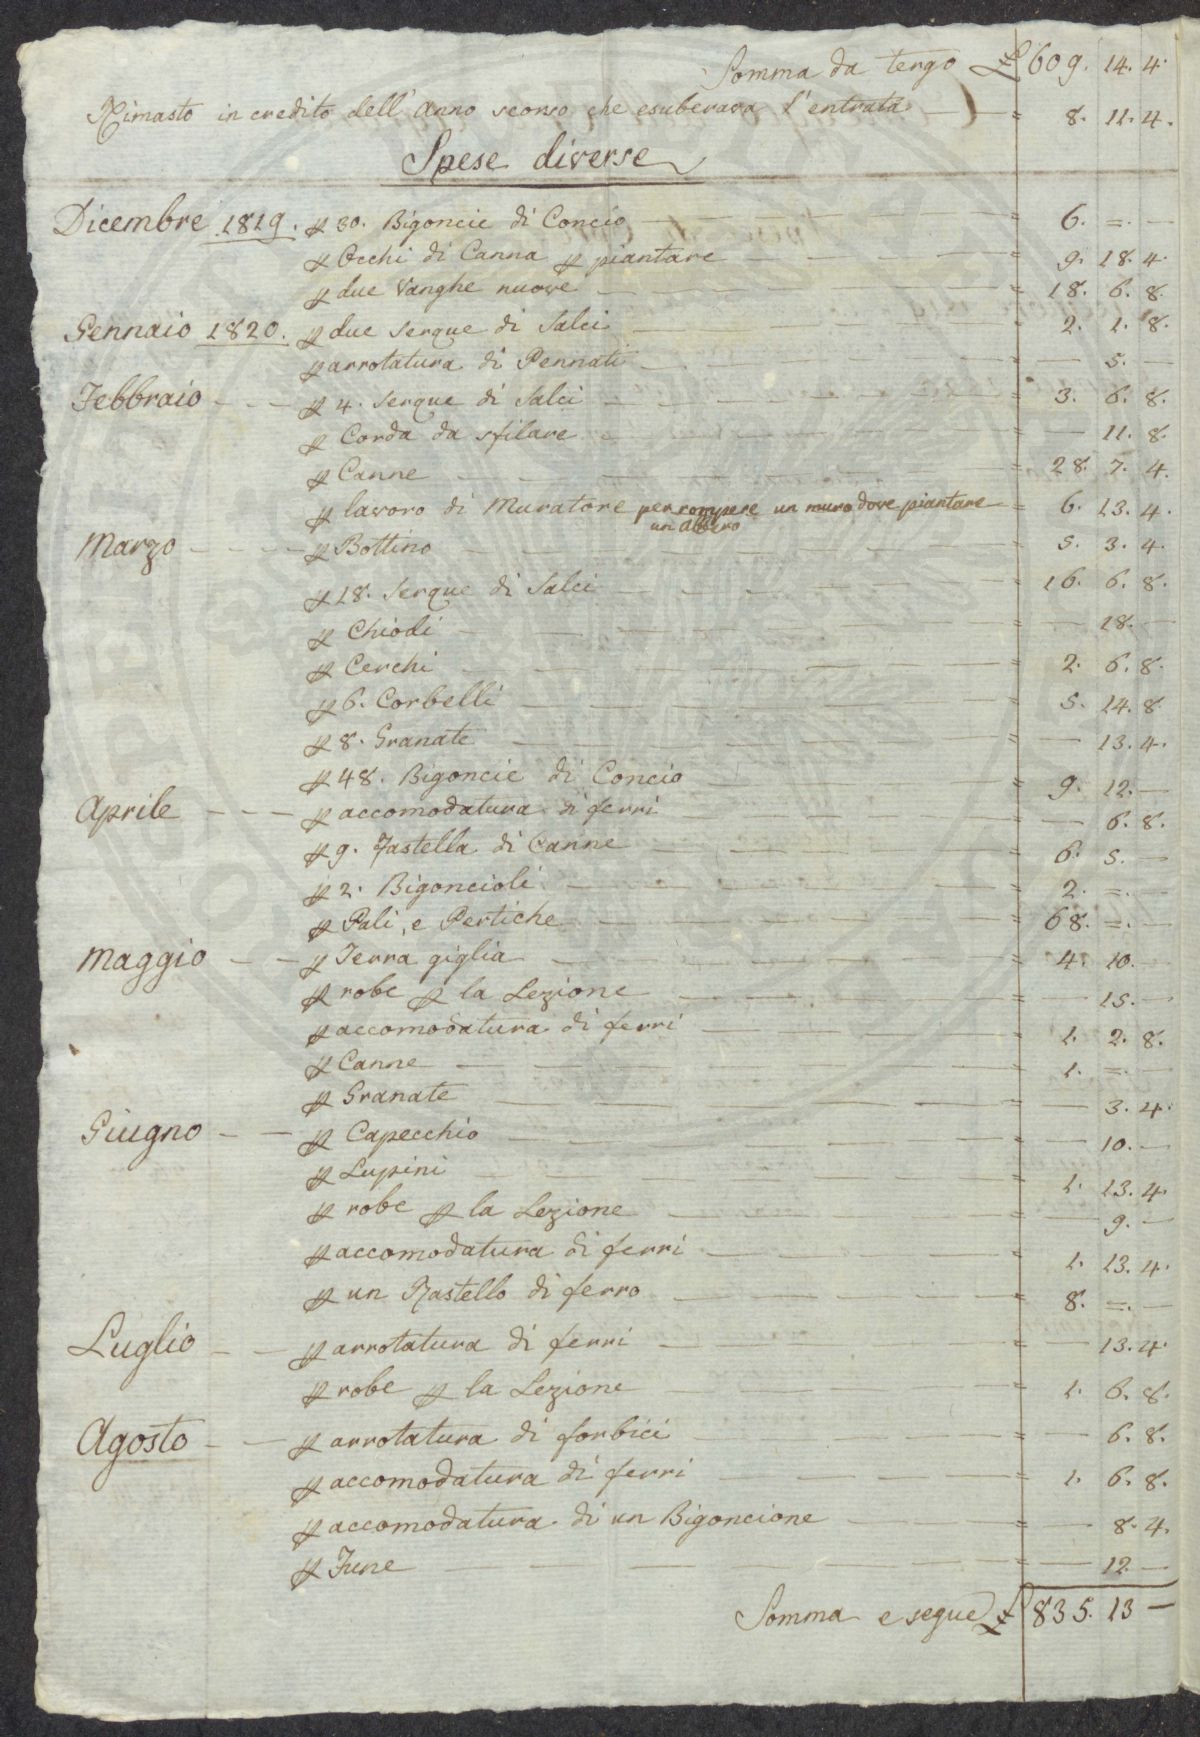 Somma da tergo £ 609. 14. 4.
Rimasto in credito dell'Anno scorso che esuberava l'entrata = 8. 11. 4.
Spese diverse
Dicembre 1819. p 30. Bigoncie di Concio = 6. =. —
p Occhi di Canna p piantare = 9. 18. 4.
p due Vanghe nuove = 18. 6. 8.
Gennaio 1820. p due serque di Salci = 2. 1. 8.
p arrotatura di Pennati = — 5. —
Febbraio — p 4. serque di Salci = 3. 6. 8.
p Corda da sfilare = — 11. 8.
p Canne = 28. 7. 4.
p lavoro di Muratore per rompere un muro dove piantare = 6. 13. 4.
un Albero
Marzo — p Bottino = 5. 3. 4.
p 18. serque di Salci = 16. 6. 8.
p Chiodi = — 18. —
p Cerchi = 2. 6. 8.
p 6. Corbelli = 5. 14. 8
p 8. Granate = — 13. 4.
p 48. Bigoncie di Concio = 9. 12. —
Aprile — p accomodatura di ferri = — 6. 8.
p 9. Fastella di Canne = 6. 5. —
p 2. Bigoncioli = 2. =. —
p Pali, e Pertiche = 68. =. —
Maggio — p Terra giglia = 4. 10. —
p robe p la Lezione = — 15. —
p accomodatura di ferri = 1. 2. 8.
p Canne = 1. =. —
p Granate = — 3. 4.
Giugno — p Capecchio = — 10. —
p Lupini = 1. 13. 4.
p robe p la Lezione = — 9. —
p accomodatura di ferri = 1. 13. 4.
p un Rastello di ferro = 8. =. —
Luglio — p arrotatura di ferri = — 13. 4.
p robe p la Lezione = 1. 6. 8.
Agosto — p arrotatura di forbici = — 6. 8.
p accomodatura di ferri = 1. 6. 8.
p accomodatura di un Bigoncione = — 8. 4.
p Fune = — 12 —
Somma e segue £ 835. 13 —